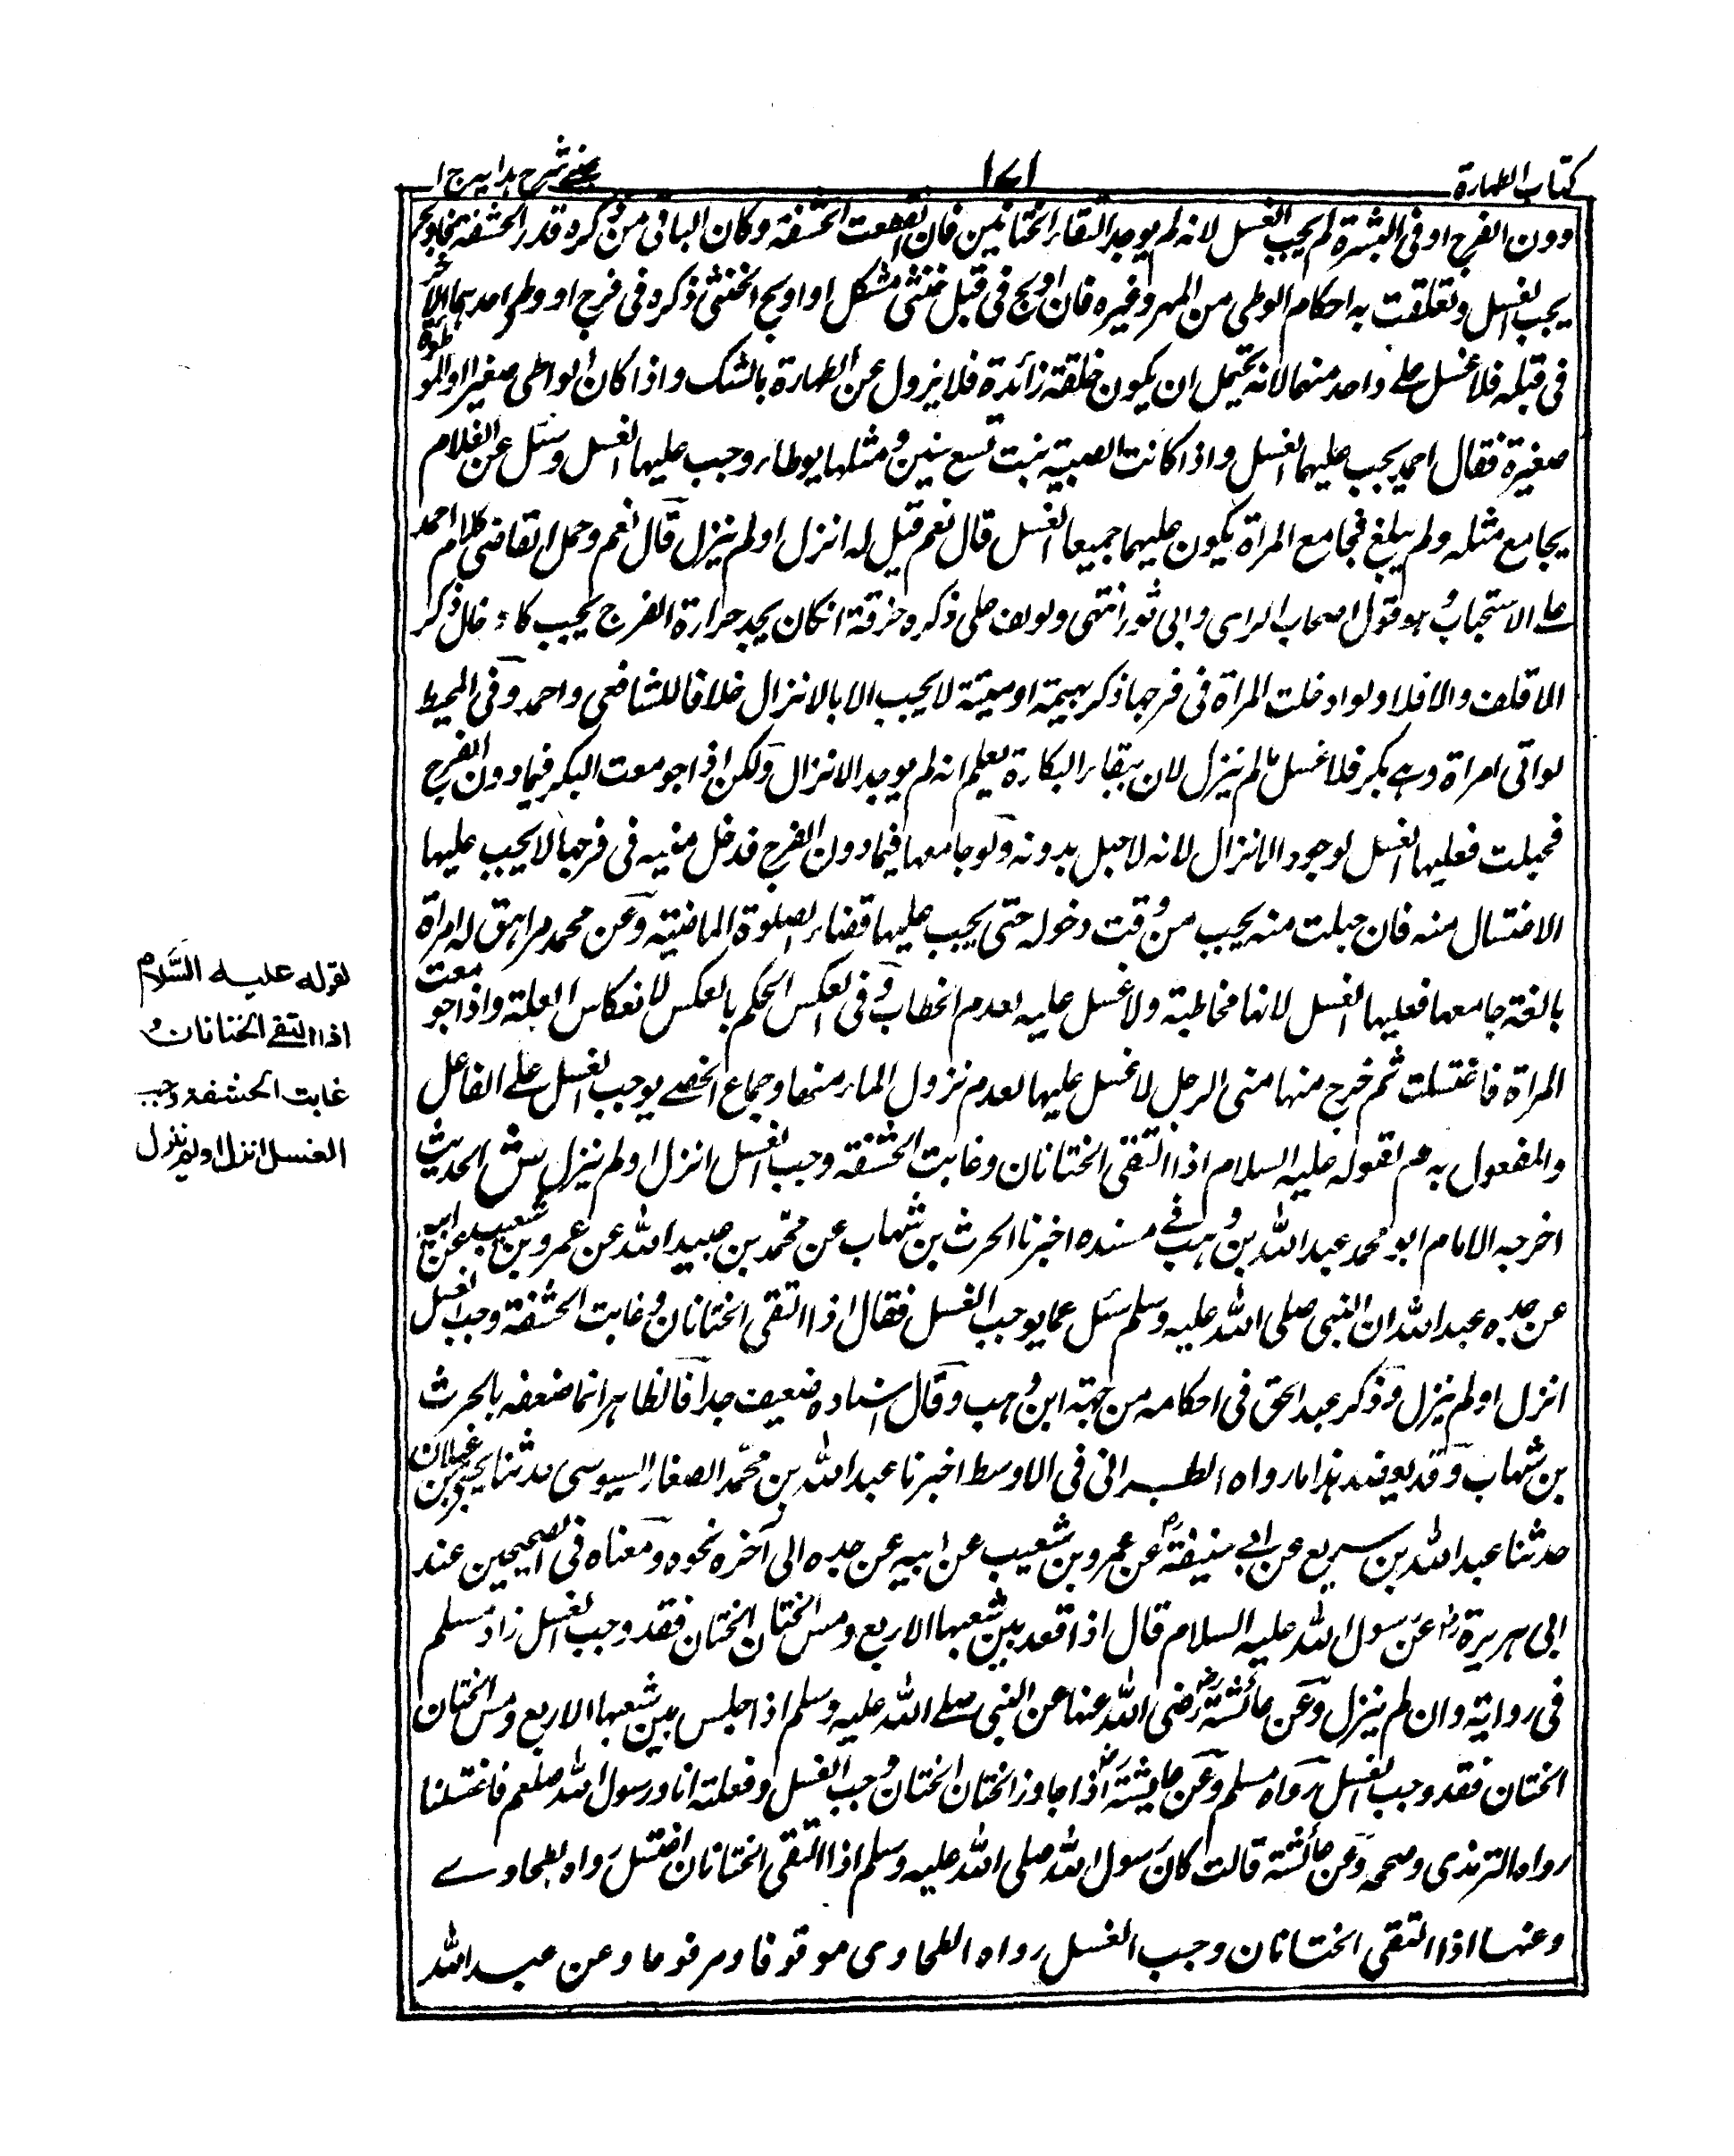 كتاب الطهارة
١٧١
عيني شرح هدايه ج ١
دون الفرج او في البشرة لم يجب الغسل لانه لم يوجد التقاء الختانين فان انقطعت الحشفة وكان الباقي من ذكره قدر الحشفة فاولج
يجب الغسل وتعلقت به احكام الوطى من المهر وغيره فان اولج في قبل خنثى مشكل او اولج الخنثى ذكره في فرج او وطى احدهما الآخر
في قبله فلا غسل على واحد منهما لانه يحتمل ان يكون خلقته زائدة فلا يزول عن الطهارة بالشك واذا كان الواطى صغيرا او الموطوءة
صغيرة فقال احمد يجب عليهما الغسل واذا كانت الصبية بنت تسع سنين ومثلها يوطاء وجب عليها الغسل وسئل عن الغلام
يجامع مثله ولم يبلغ فجامع المراة يكون عليهما جميعا الغسل قال نعم قيل له انزل او لم ينزل قال نعم وحمل القاضي كلام احمد
على الاستحباب وهو قول اصحاب الراى وابي ثور انتهى ولو لف على ذكره خرقة ان كان يجد حرارة الفرج يجب كادخال ذكر
الاقلف والا فلا ولو ادخلت المراة في فرجها ذكر بهيمة او ميتة لا يجب الا بالانزال خلافا للشافعي واحمد وفي المحيط
لو اتى امراة وهي بكر فلا غسل ما لم ينزل لان ببقاء البكارة يعلم انه لم يوجد الانزال ولكن اذا جومعت البكر فيما دون الفرج
فحبلت فعليها الغسل لوجود الانزال لانه لا حبل بدونه ولو جامعها فيما دون الفرج فدخل منيه في فرجها لا يجب عليها
الاغتسال منه فان حبلت منه يجب من وقت دخوله حتى يجب عليها قضاء الصلوة الماضية وعن محمد مراهق له امراة
بالغة جامعها فعليها الغسل لانها مخاطبة ولا غسل عليه لعدم الخطاب وفي العكس الحكم بالعكس لانعكاس العلة واذا جومعت
المراة فاغتسلت ثم خرج منها منى الرجل لا غسل عليها لعدم نزول الماء منها وجماع الخصي يوجب الغسل على الفاعل
والمفعول به م لقوله عليه السلام اذا التقى الختانان وغابت الحشفة وجب الغسل انزل او لم ينزل ش الحديث
اخرجه الامام ابو محمد عبد الله بن وهب في مسنده اخبرنا الحرث بن شهاب عن محمد بن عبيد الله عن عمرو بن شعيب عن ابيه
عن جده عبد الله ان النبي صلى الله عليه وسلم سئل عما يوجب الغسل فقال اذا التقى الختانان وغابت الحشفة وجب الغسل
انزل او لم ينزل وذكر عبد الحق في احكامه من جهة ابن وهب وقال اسناده ضعيف جدا فالظاهر انما ضعفه بالحرث
بن شهاب وقد يعضد هذا ما رواه الطبراني في الاوسط اخبرنا عبد الله بن محمد الصغار السوسى حدثنا يحيى بن غيلان
حدثنا عبد الله بن سريع عن ابي حنيفة رح عن عمرو بن شعيب عن ابيه عن جده الى آخره نحوه ومعناه في الصحيحين عند
ابي هريرة رض عن رسول الله عليه السلام قال اذا قعد بين شعبها الاربع ومس الختان الختان فقد وجب الغسل زاد مسلم
في رواية وان لم ينزل وعن عائشة رضى الله عنها عن النبي صلى الله عليه وسلم اذا جلس بين شعبها الاربع ومس الختان
الختان فقد وجب الغسل رواه مسلم وعن عايشة رض اذا جاوز الختان الختان وجب الغسل وفعلته انا ورسول الله صلعم فاغتسلنا
رواه الترمذى وصححه وعن عائشة قالت كان رسول الله صلى الله عليه وسلم اذا التقى الختانان اغتسل رواه الطحاوى
وعنها اذا التقى الختانان وجب الغسل رواه الطحاوى موقوفا ومرفوعا وعن عبد الله
لقوله عليه السَّلام
اذا التقى الختانان و
غابت الحشفة وجب
الغسل انزل او لم ينزل